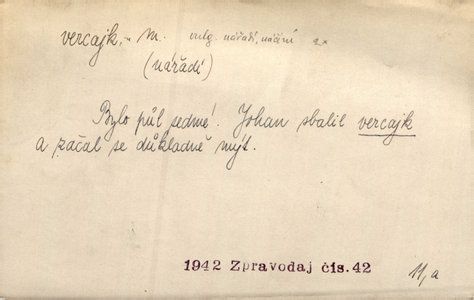 vercajk, - m. vulg. nářadí, náčiní 2x
(nářadí)
Bylo půl sedmé! Johan sbalil vercajk
a začal se důkladně mýt.
1942 Zpravodaj čís. 42
11, a